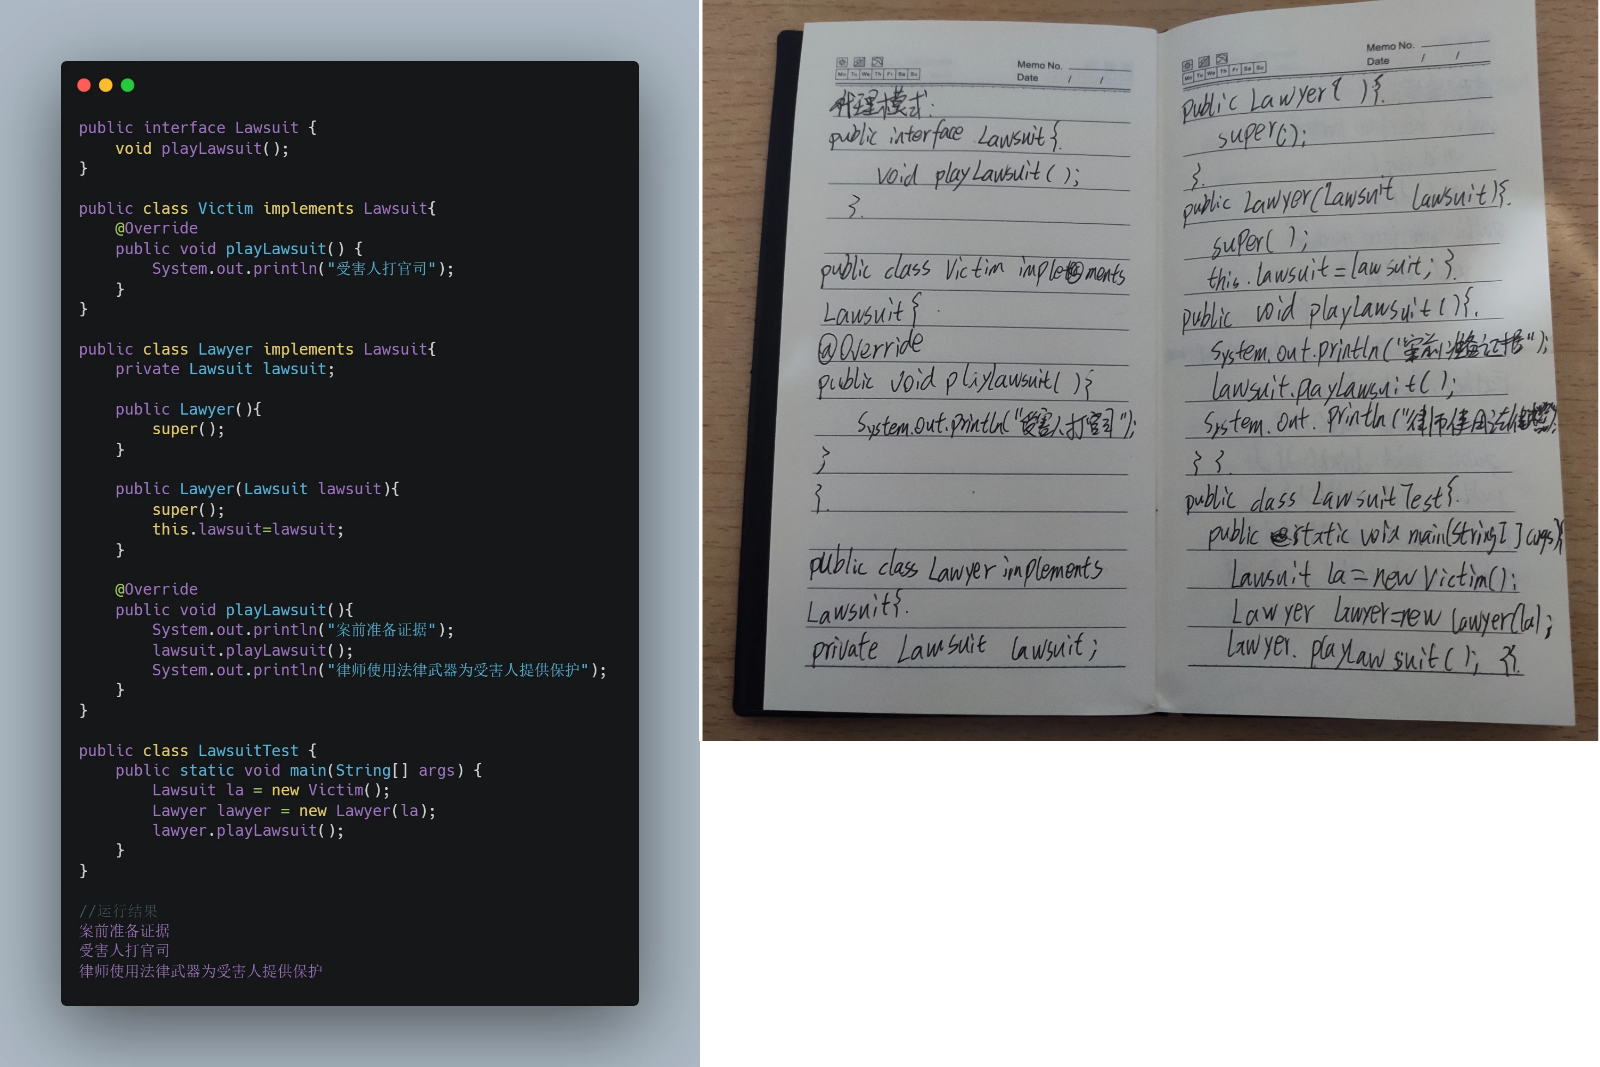 public interface Lawsuit {
void playLawsuit();
}
public class Victim implements Lawsuit{
@Override
public void playLawsuit() {
System.out.println("受害人打官司");
}
}
public class Lawyer implements Lawsuit{
private Lawsuit lawsuit;
public Lawyer(){
super();
}
public Lawyer(Lawsuit lawsuit){
super();
this.lawsuit=lawsuit;
}
@Override
public void playLawsuit(){
System.out.println("案前准备证据");
lawsuit.playLawsuit();
System.out.println("律师使用法律武器为受害人提供保护");
}
}
public class LawsuitTest {
public static void main(String[] args) {
Lawsuit la = new Victim();
Lawyer lawyer = new Lawyer(la);
lawyer.playLawsuit();
}
}
//运行结果
案前准备证据
受害人打官司
律师使用法律武器为受害人提供保护
Memo No.
Mo Tu We Th Fr Sa Su
Date / /
代理模式:
public interface Lawsuit{
void playLawsuit();
}
public class Victim implements
Lawsuit{
@Override
public void playlawsuit(){
System.out.println("受害人打官司");
}
}
public class Lawyer implements
Lawsuit{
private Lawsuit lawsuit;
Memo No.
Date / /
Mo Tu We Th Fr Sa Su
public Lawyer( ){
super();
}
public Lawyer(Lawsuit lawsuit){
super();
this.lawsuit=lawsuit; }
public void playLawsuit(){
System.out.println("案前准备证据");
lawsuit.playLawsuit();
System.out.println("律师使用法律
} }
public class LawsuitTest{
public static void main(String[] args){
Lawsuit la=new Victim();
Lawyer lawyer=new lawyer(la);
lawyer.playLawsuit(); }}